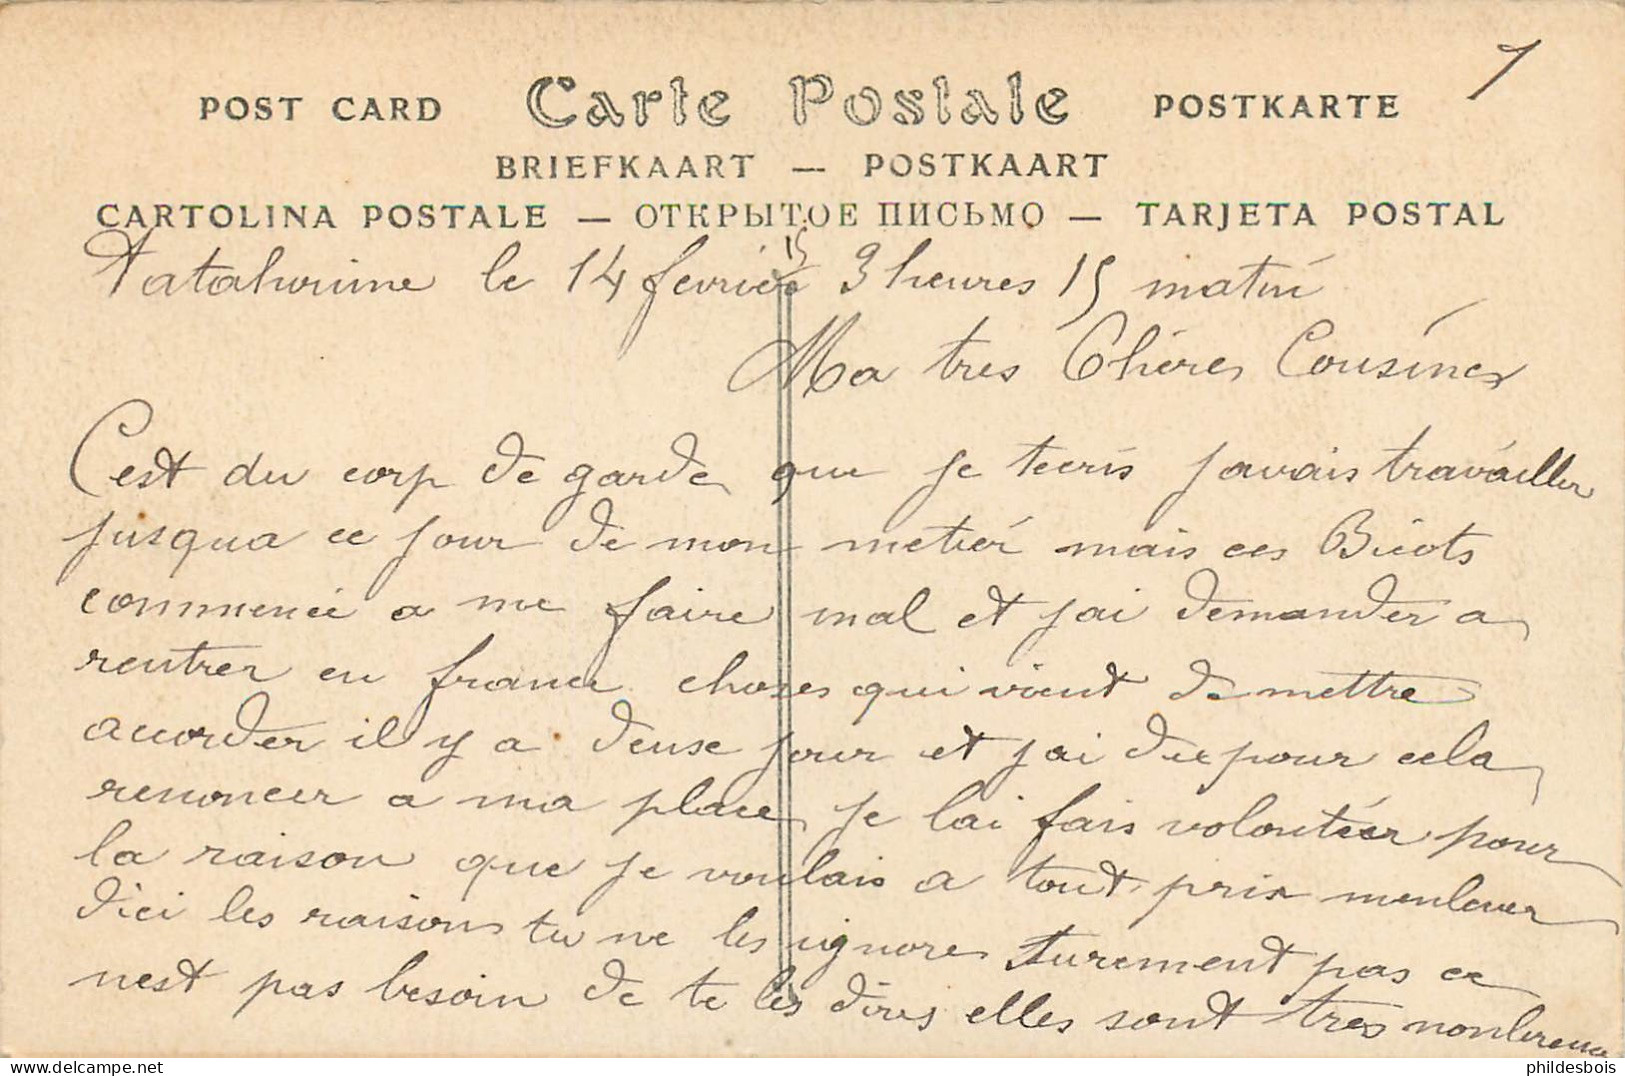 1
POST CARD Carte Postale POSTKARTE
BRIEFKAART — POSTKAART
CARTOLINA POSTALE — ОТКРЫТОЕ ПИСЬМО — TARJETA POSTAL
15
le 14 fevrier 3 heures 15 matin
Ma tres Chères Cousines
C'est du corp de garde que je tecris javais travailler
jusqua ce jour de mon metier mais ces Bicots
commencé a me faire mal et jai demander a
rentrer en france choses qui vient de mettre
accorder il y a deuse jour et jai du pour cela
renoncer a ma place je lai fais volontier pour
la raison que je voulais a tout prix menlever
d'ici les raisons tu ne les ignores surement pas ce
nest pas besoin de te les dires elles sont très nonbreuse
phildesbois